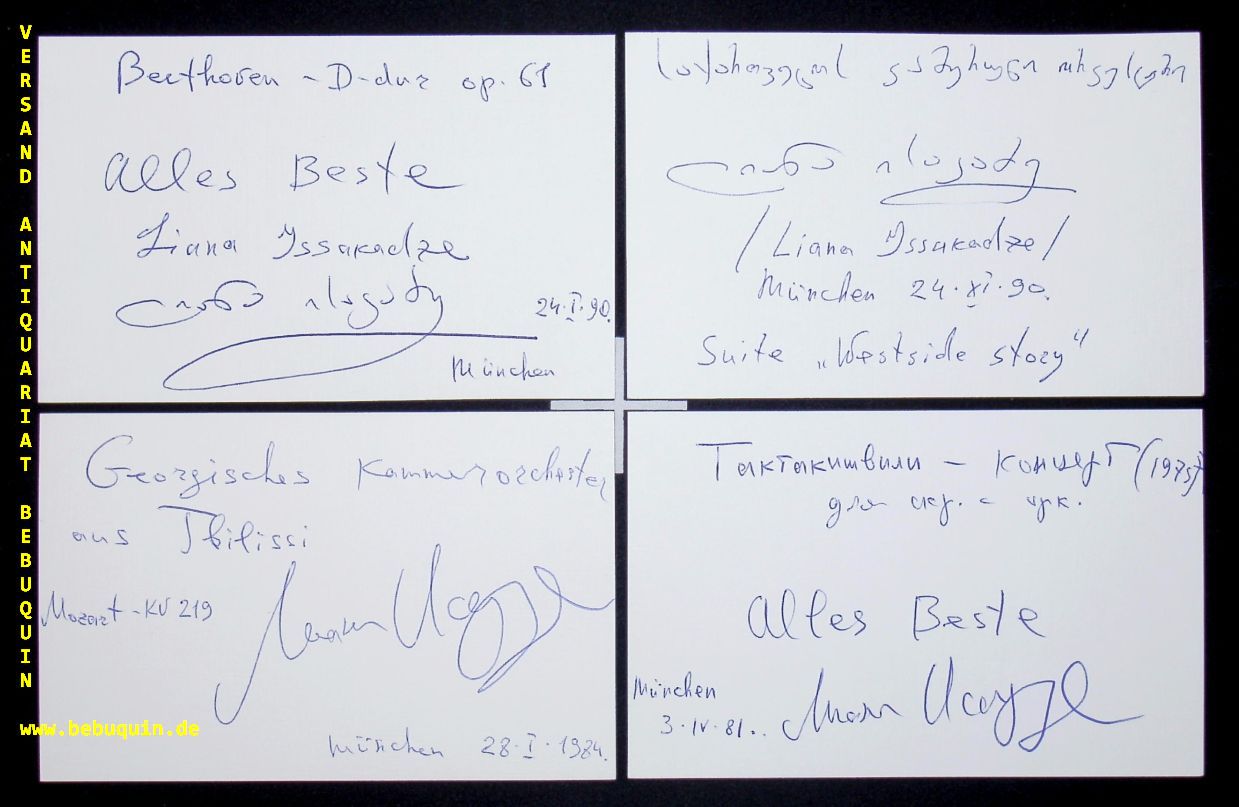 VERSAND ANTIQUARIAT BEBUQUIN
Beethoven - D-dur op. 61
Alles Beste
Liana Issakadze
24.I.90.
München
საქართველოს კამერული ორკესტრი
/Liana Issakadze/
München 24.XI.90.
Suite „Westside story“
Georgisches Kammerorchester
aus Tbilissi
Mozart - KV 219
München 28.I.1984.
Тактакишвили - концерт (1975)
для скр. с орк.
Alles Beste
München
3.IV.81..
www.bebuquin.de